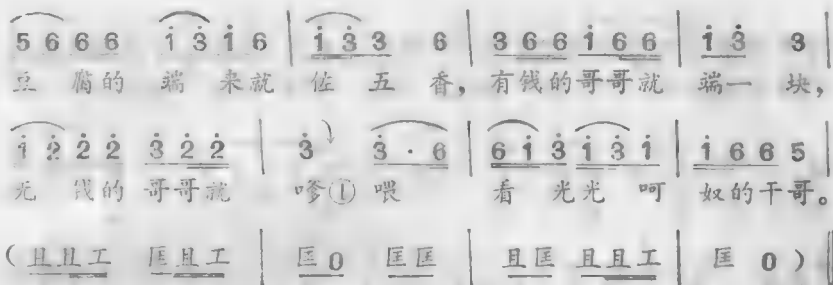 5 6 6 6 i̇ 3̇ i̇ 6 | i̇ 3̇ 3 6 | 3 6 6 i̇ 6 6 | i̇ 3̇ 3 |
豆腐的 端来就 佐五香，有钱的哥哥就 端一块，
i̇ 2̇ 2̇ 2̇ 3̇ 2̇ 2̇ | 3̇ 3̇ · 6 | 6 i̇ 3̇ i̇ 3̇ i̇ | i̇ 6 6 5 |
无钱的哥哥就 嗲① 喂 看光光呵 奴的干哥。
（且且工 匡且工 | 匡 0 匡匡 | 且匡 且且工 | 匡 0 ）‖